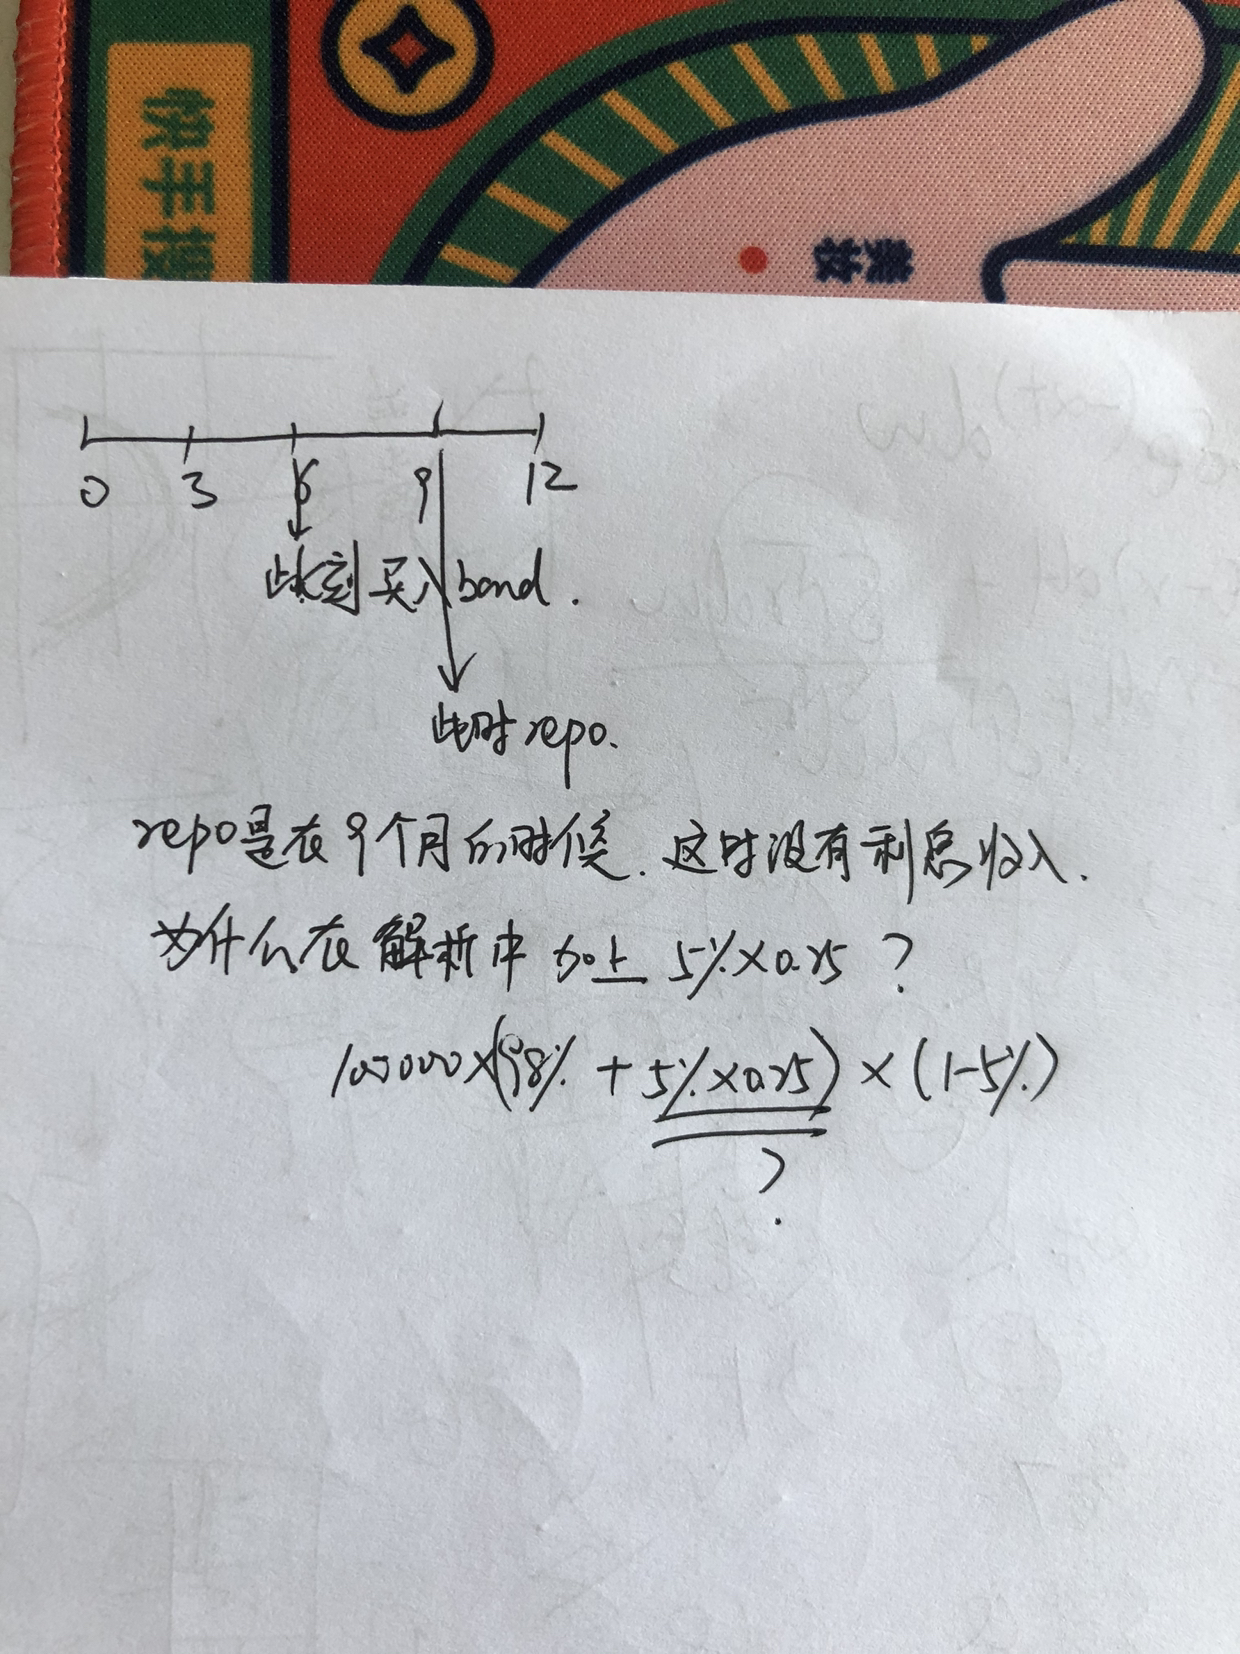 快手搜
美妆
0 3 6 9 12
此刻买入bond.
此时repo.
repo是在9个月的时候.这时没有利息收入.
为什么在解析中加上 5%×0.25 ?
100000×(98% + 5%×0.25) × (1-5%)
?